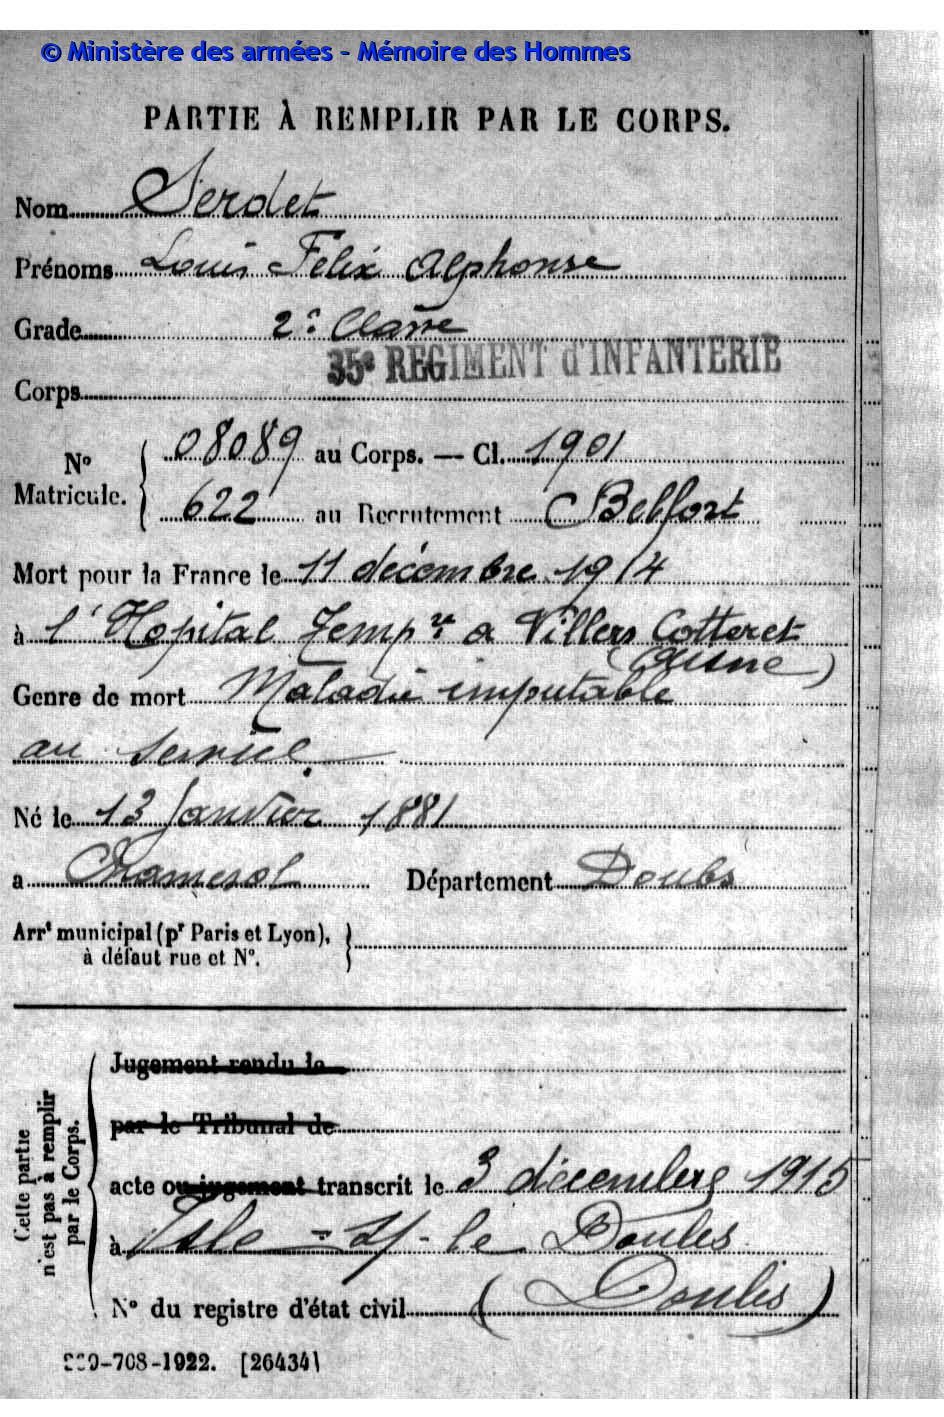 © Ministère des armées - Mémoire des Hommes
PARTIE À REMPLIR PAR LE CORPS.
Nom Serdet
Prénoms Louis Felix Alphonse
Grade 2e Classe
35e REGIMENT d'INFANTERIE
Corps
No Matricule. 08089 au Corps. — Cl. 1901
622 au Recrutement Belfort
Mort pour la France le 11 décembre 1914
à l'Hopital Tempre a Villers Cotteret
(Aisne)
Genre de mort Maladie imputable
au service.
Né le 13 Janvier 1881
a Chamesol Département Doubs
Arrt municipal (pr Paris et Lyon),
à défaut rue et No.
Cette partie n'est pas à remplir par le Corps.
Jugement rendu le
par le Tribunal de
acte ou jugement transcrit le 3 décembre 1915
à Isle-s/-le Doubs
No du registre d'état civil (Doubs)
-708-1922. [26434]